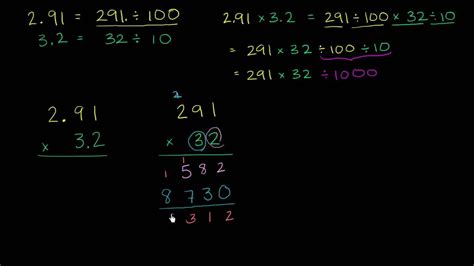 2.91 = 291. ÷ 100
3.2 = 32 ÷ 10
2.91 × 3.2 = 291 ÷ 100 × 32 ÷ 10
= 291 × 32 ÷ 100 ÷ 10
= 291 × 32 ÷ 1000
2.91
× 3.2
2
291
× 32
1
1 582
8730
312